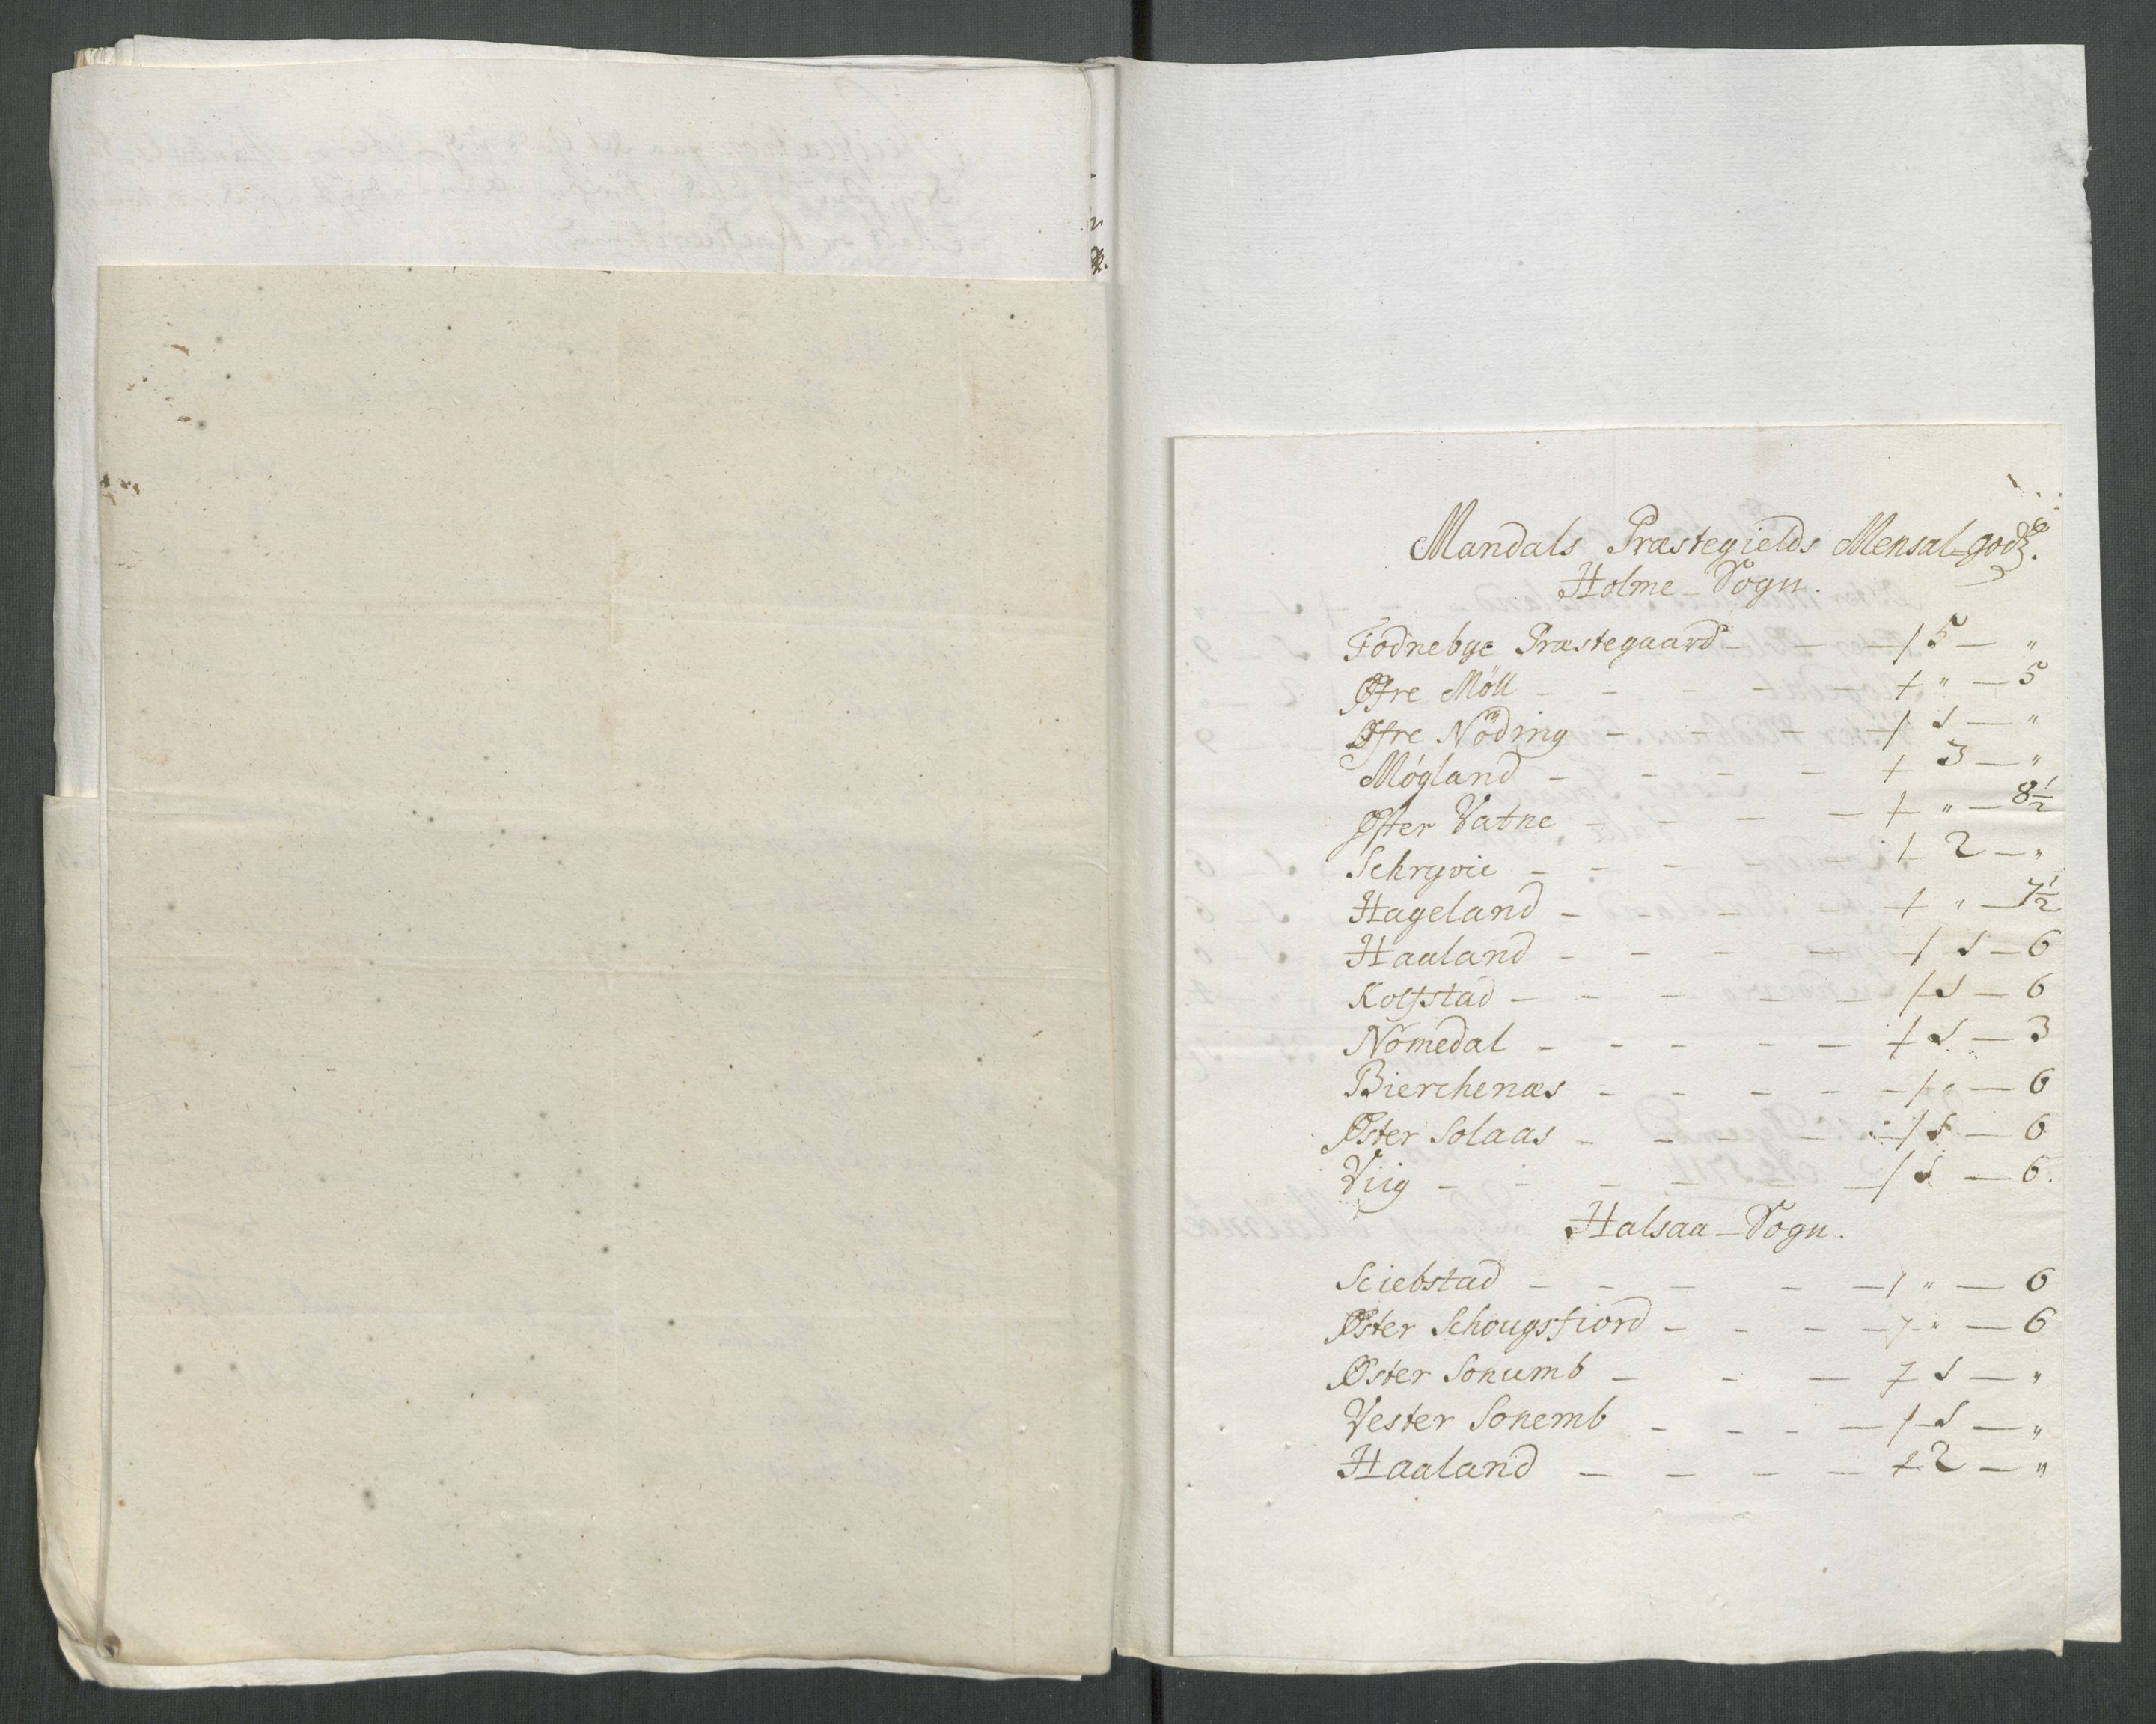 Mandals Præstegields Mensal-godz.
Holme-Sogn.
Fodnebye Præstegaard - - - / 5 - "
Øfre Möll - - - - - / " - 5
Øfre Nöding - - - - / 1 - "
Mögland - - - - / 3 - "
Øster Vatne - - - - / " - 8 1/2
Schryvie - - - - - / 2 - "
Hageland - - - - - / " - 7 1/2
Haaland - - - - / 1 - 6
Kolfstad - - - - - / 1 - 6
Nomedal - - - - - / 1 - 3
Bierchenæs - - - - - / " - 6
Øster Solaas - - - - / 1 - 6
Viig - - - - - / 1 - 6.
Halsaa-Sogn.
Sciebstad - - - - - / " - 6
Øster Schougsfiord - - - - / " - 6
Øster Sonumb - - - / 1 - "
Vester Sonemb - - - - / 1 - "
Haaland - - - - / 2 - "